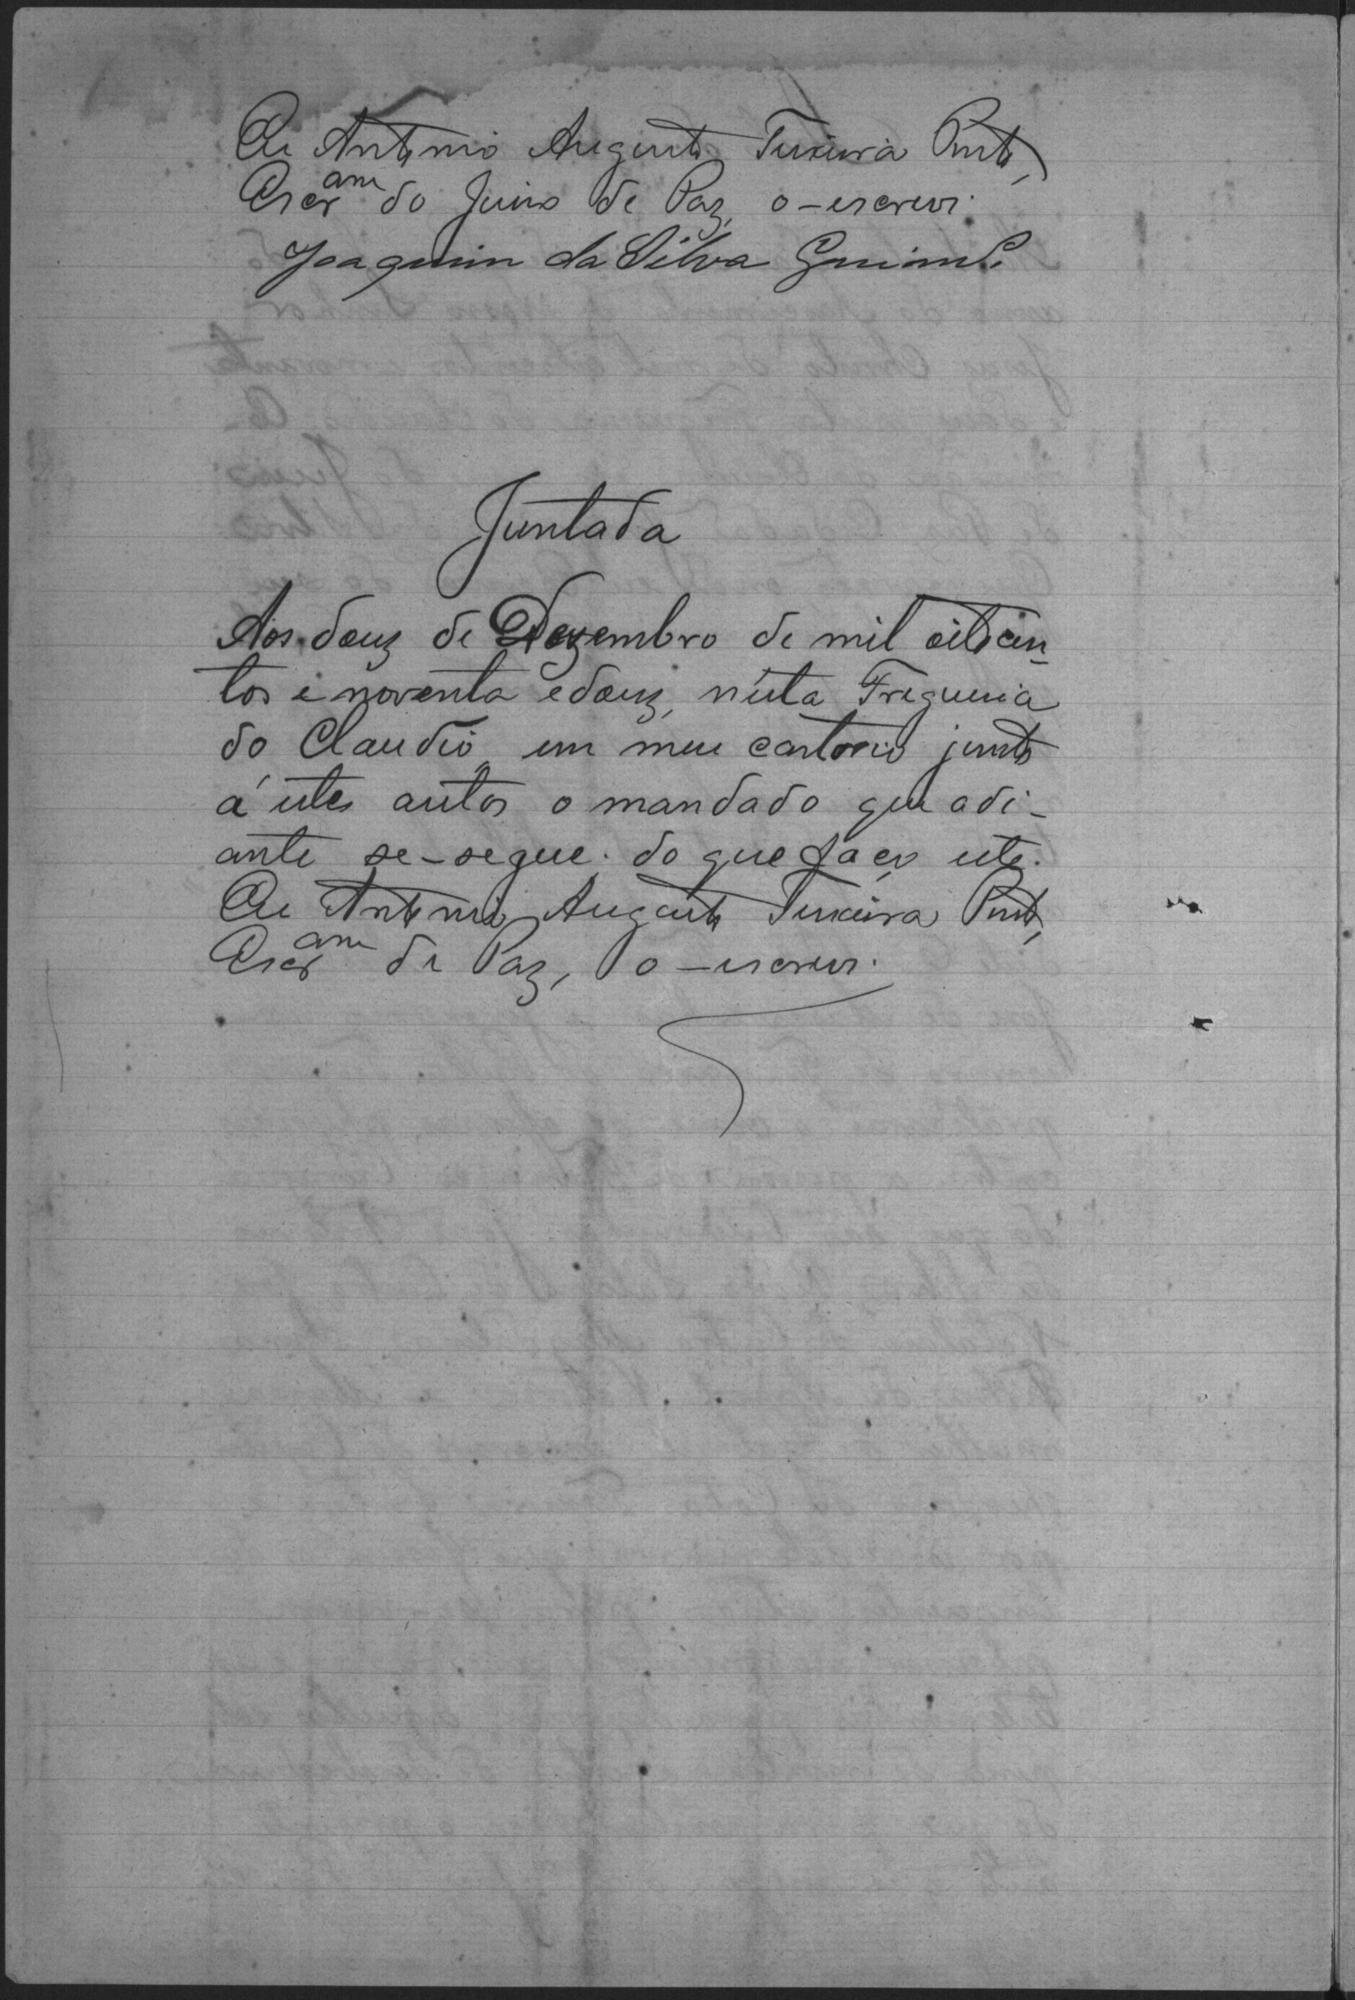 Eu Antonio Augusto Teixeira Pinto,
Escr.am do Juizo de Paz, o-escrevi.
Joaquim da Silva Guimes
Juntada
Aos douz de Dezembro de mil oitocen-
tos e noventa e douz, n'esta Freguesia
do Claudio, em meu cartorio junto
á estes autos o mandado que adi-
ante se-segue. do que faço este.
Eu Antonio Augusto Teixeira Pinto,
Escr.am de Paz, o-escrevi.